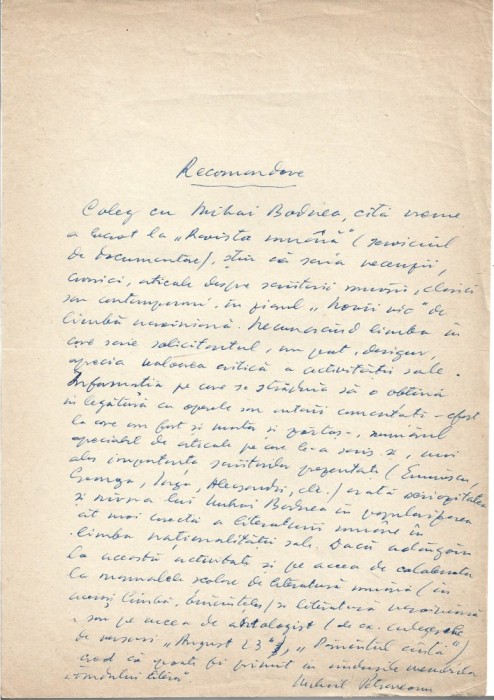 Recomandare
Coleg cu Mihai Bodnea, cîtă vreme
a lucrat la „Revista română" (serviciul
de documentare), știu că scria recenzii,
cronici, articole despre scriitorii români, clasici
sau contemporani în ziarul „Novîi vic" de
limbă ucrainiană. Necunoscînd limba în
care scrie solicitantul, nu pot, desigur,
aprecia valoarea critică a activității sale.
Informația pe care se străduia să o obțină
în legătură cu operele sau autorii comentați – efort
la care am fost și martor și părtaș –, numărul
apreciabil de articole pe care le-a scris și, mai
ales importanța scriitorilor prezentați (Eminescu,
Creangă, Iorga, Alecsandri, etc.) arată seriozitatea
și rîvna lui Mihai Bodnea în popularizarea
cît mai corectă a literaturii române în
limba naționalității sale. Dacă adăugăm
la această activitate și pe aceea de colaborator
la manualele școlare de literatură română (în
aceeași limbă, bineînțeles) și literatură ucrainiană
sau pe aceea de antologist (de ex. culegerile
de versuri „August 23", „Pămîntul cîntă")
cred că poate fi primit în rîndurile membrilor
fondului literar
Mihail Petroveanu